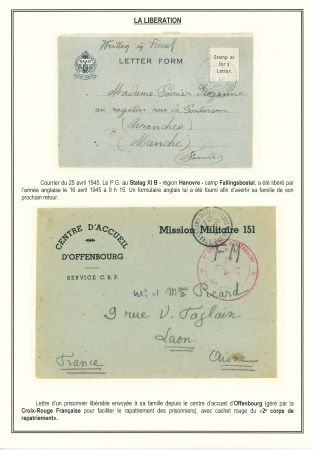 LA LIBERATION
Written in French
LETTER FORM
Stamp as
for a
Letter.
Madame Poirier Suzanne
au rue de Pontorson
(Avranches)
(Manche)
France
Courrier du 25 avril 1945. Le P.G. au Stalag XI B - région Hanovre - camp Fallingsbostel, a été libéré par
l'armée anglaise le 16 avril 1945 à 9 h 15. Un formulaire anglais lui a été fourni afin d'avertir sa famille de son
prochain retour.
CENTRE D'ACCUEIL
D'OFFENBOURG
SERVICE C.R.F.
Mission Militaire 151
FM
Mr et Mme Picard
9 rue V. Taglain
Laon
Aisne
France
Lettre d'un prisonnier libérable envoyée à sa famille depuis le centre d'accueil d'Offenbourg (géré par la
Croix-Rouge Française pour faciliter le rapatriement des prisonniers), avec cachet rouge du «2e corps de
rapatriement».